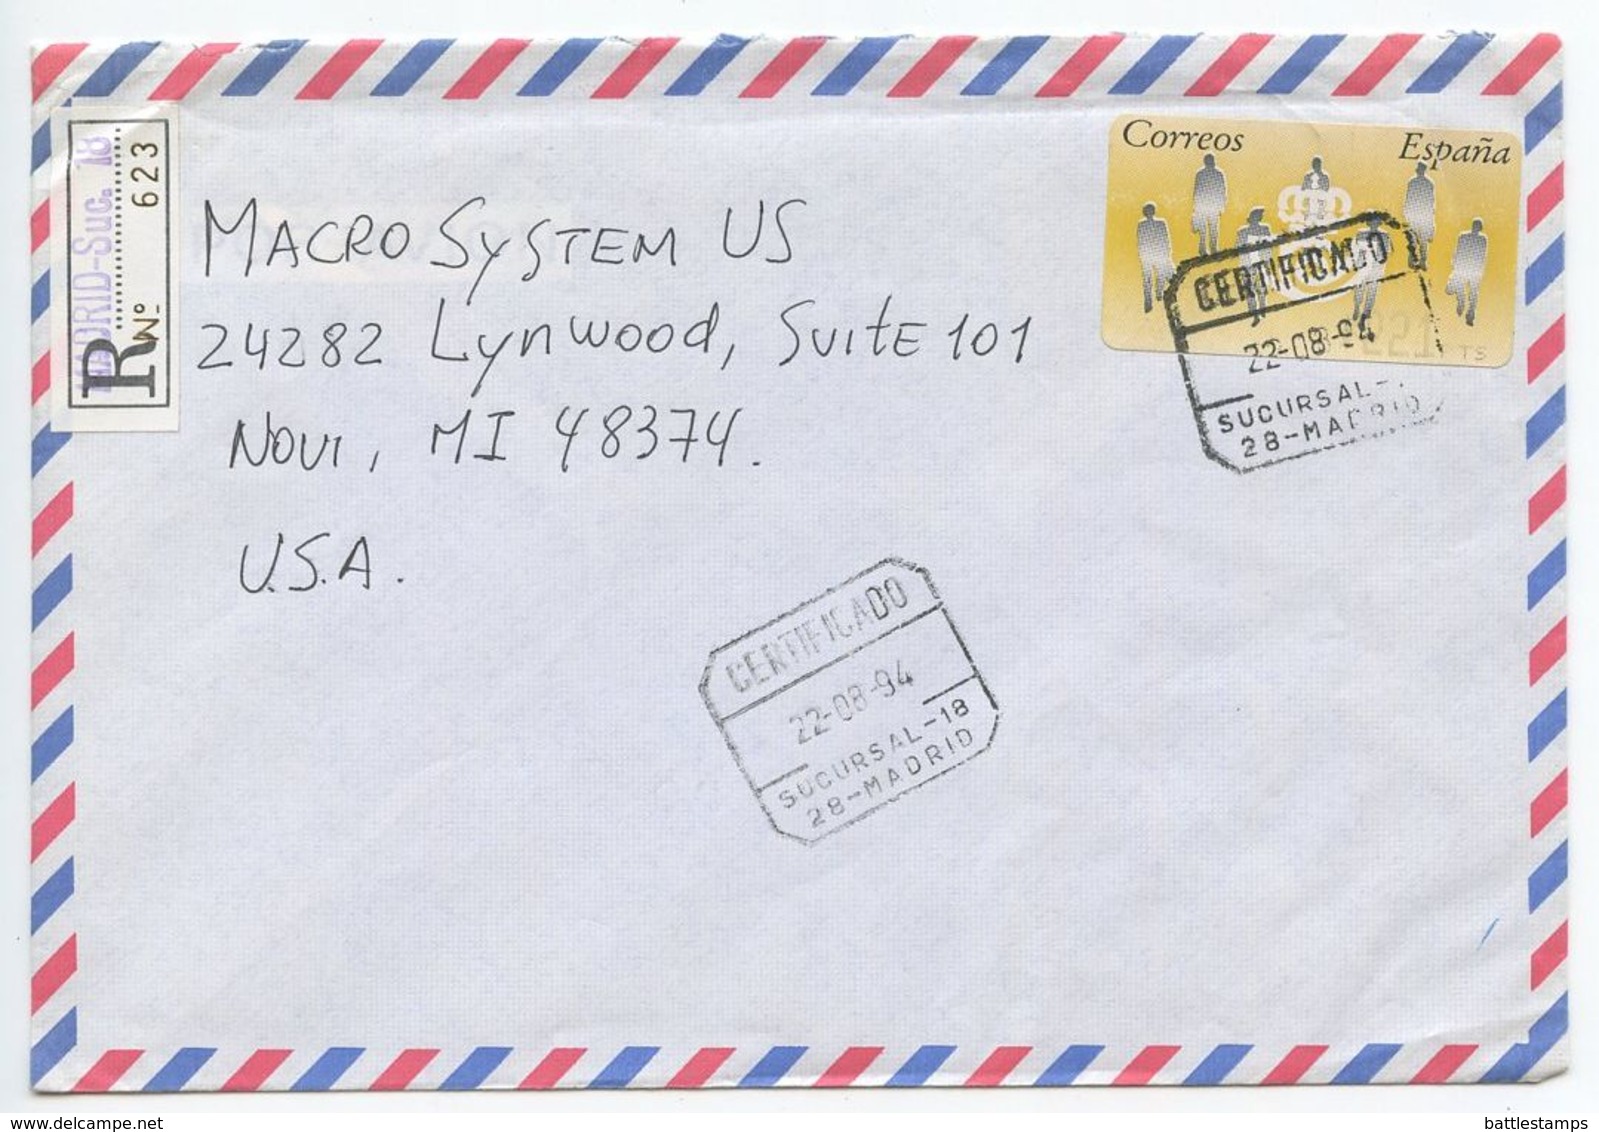 MADRID-Suc. 18
R Nº 623
Correos España
MACRO SYSTEM US
24282 Lynwood, SUITE 101
NOVI, MI 48374.
U.S.A.
CERTIFICADO
22-08-94
TS
SUCURSAL-
28-MADRID
CERTIFICADO
22-08-94
SUCURSAL-18
28-MADRID
www.delcampe.net
battlestamps